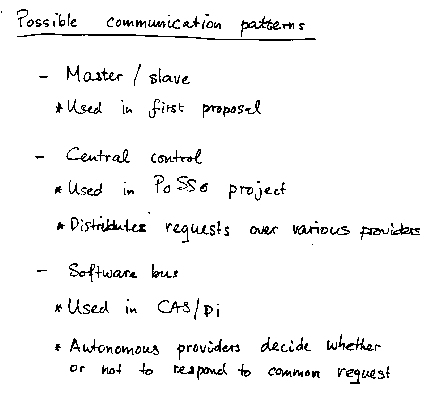 Possible communication patterns
- Master / slave
* Used in first proposal
- Central control
* Used in PoSSo project
* Distributes requests over various providers
- Software bus
* Used in CAS/Pi
* Autonomous providers decide whether
or not to respond to common request